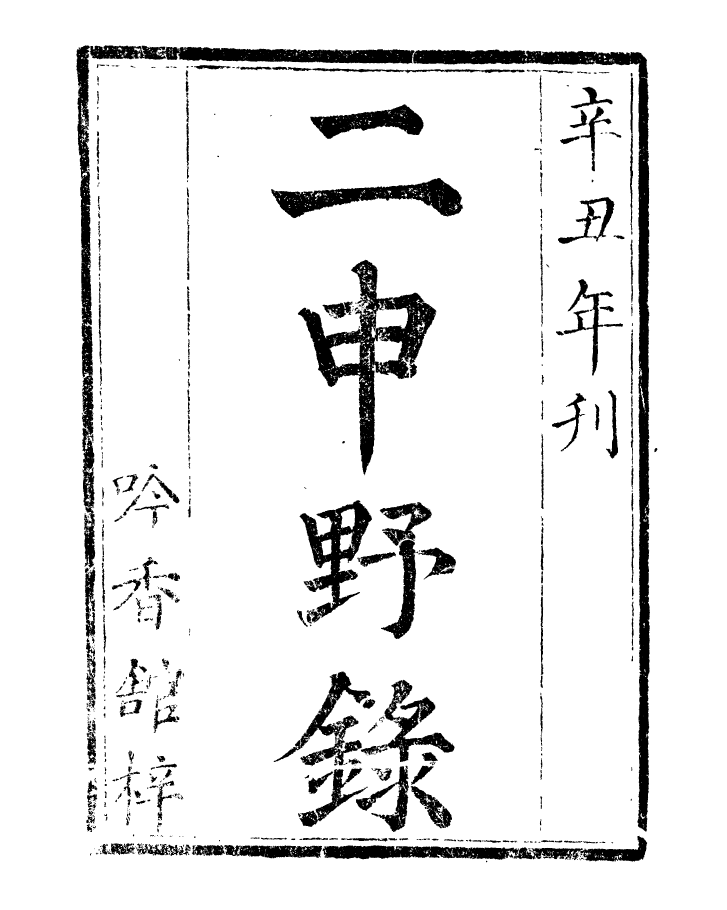 辛丑年刋
二申野錄
吟香舘梓